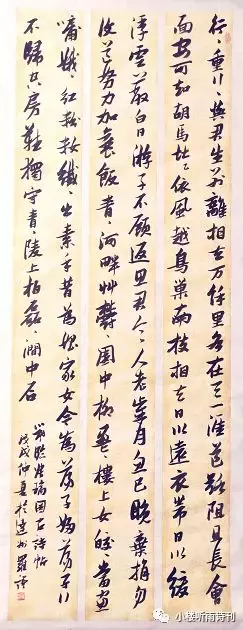 行〻重〻行與君生别離相去万余里各在天一涯道路阻且長會
面安可知胡馬北依風越鳥巢南枝相去日以遠衣帶日以緩
浮雲蔽白日游子不顧返思君令人老歲月忽已晚棄捐勿
復道努力加餐飯青〻河畔草鬱〻園中柳盈〻樓上女皎當窗
牖娥〻红粉妝纖〻出素手昔為娼家女今為蕩子婦蕩子行
不歸空房難獨守青〻陵上柏磊〻澗中石
古詩帖
戊戌仲夏於達州
小楼听雨诗刊